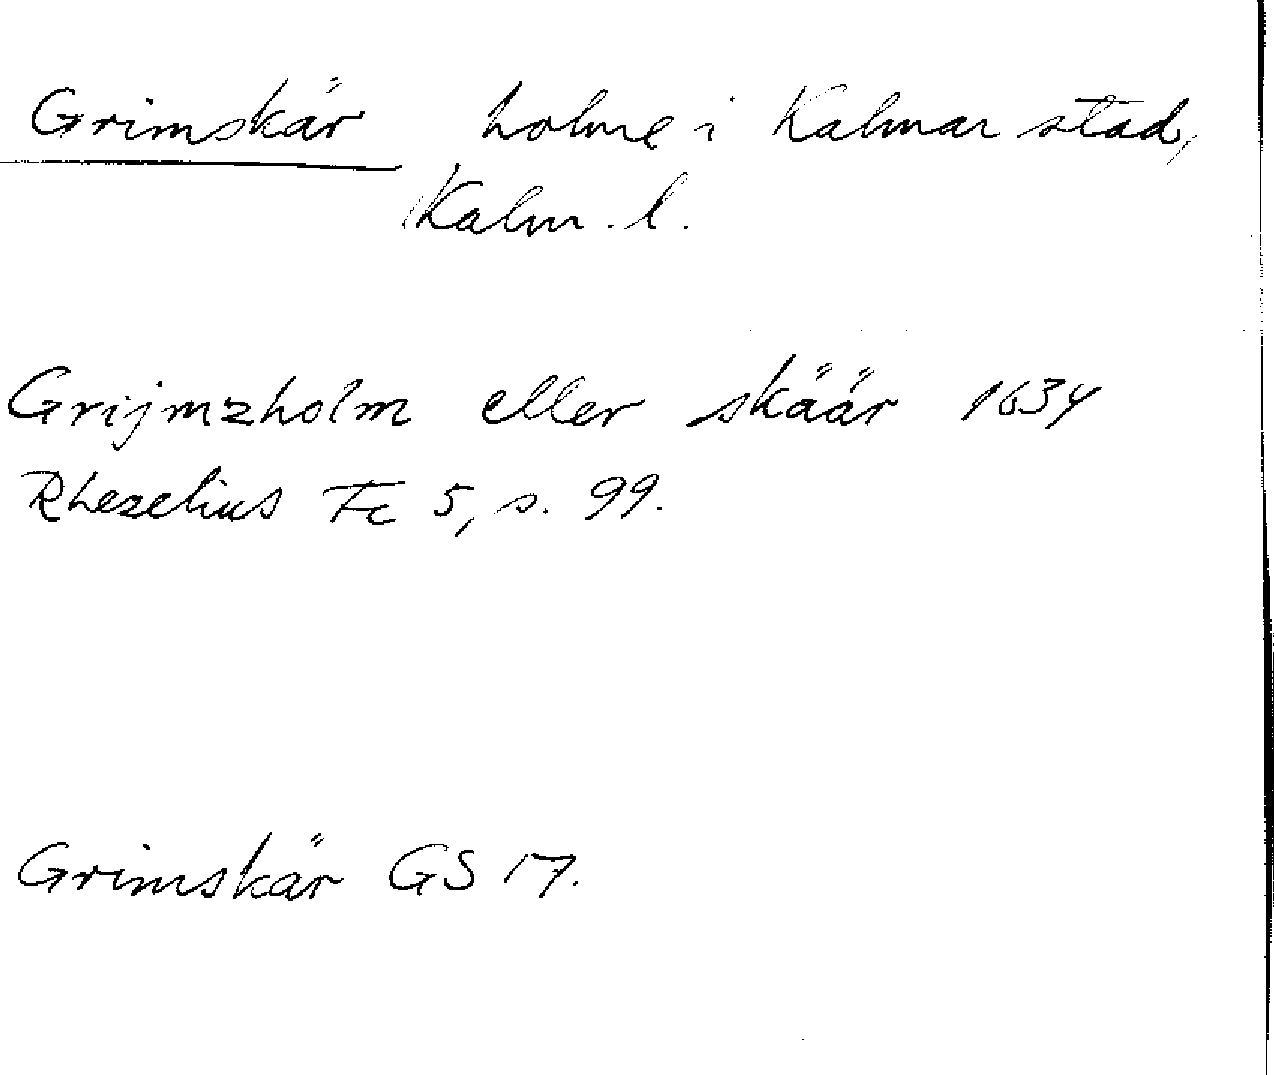 Grimskär holme i Kalmar stad,
Kalm. l.
Grijmzholm eller skäär 1634
Rhezelius Fc 5, s. 99.
Grimskär GS 17.